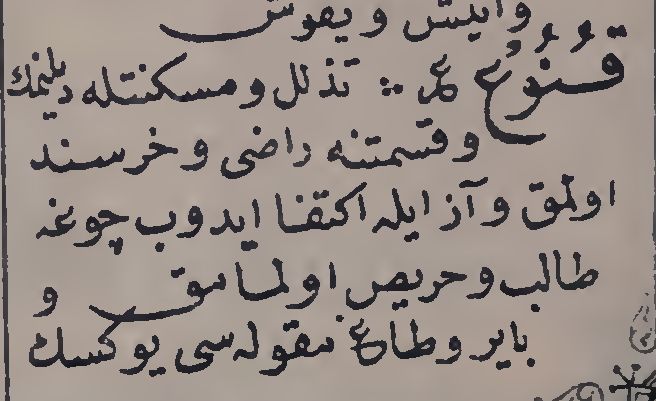 وایش و یقوش
قُنُوعْ عر ∴ تذلل و مسکنتله دیلنمك
و قسمتنه راضی و خرسند
اولمق و آز ایله اکتفا ایدوب چوغه
طالب و حریص اولمامق و
بایر و طاغ مقوله‌سی یوکسك